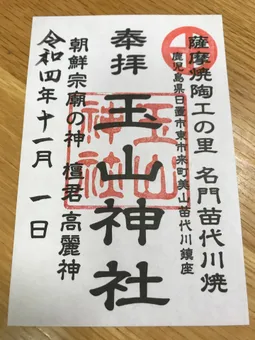 薩摩焼陶工の里 名門苗代川焼
鹿児島県日置市東市来町美山苗代川鎮座
奉拝 玉山神社
玉山神社
朝鮮宗廟の神 檀君 高麗神
令和四年十一月 一日